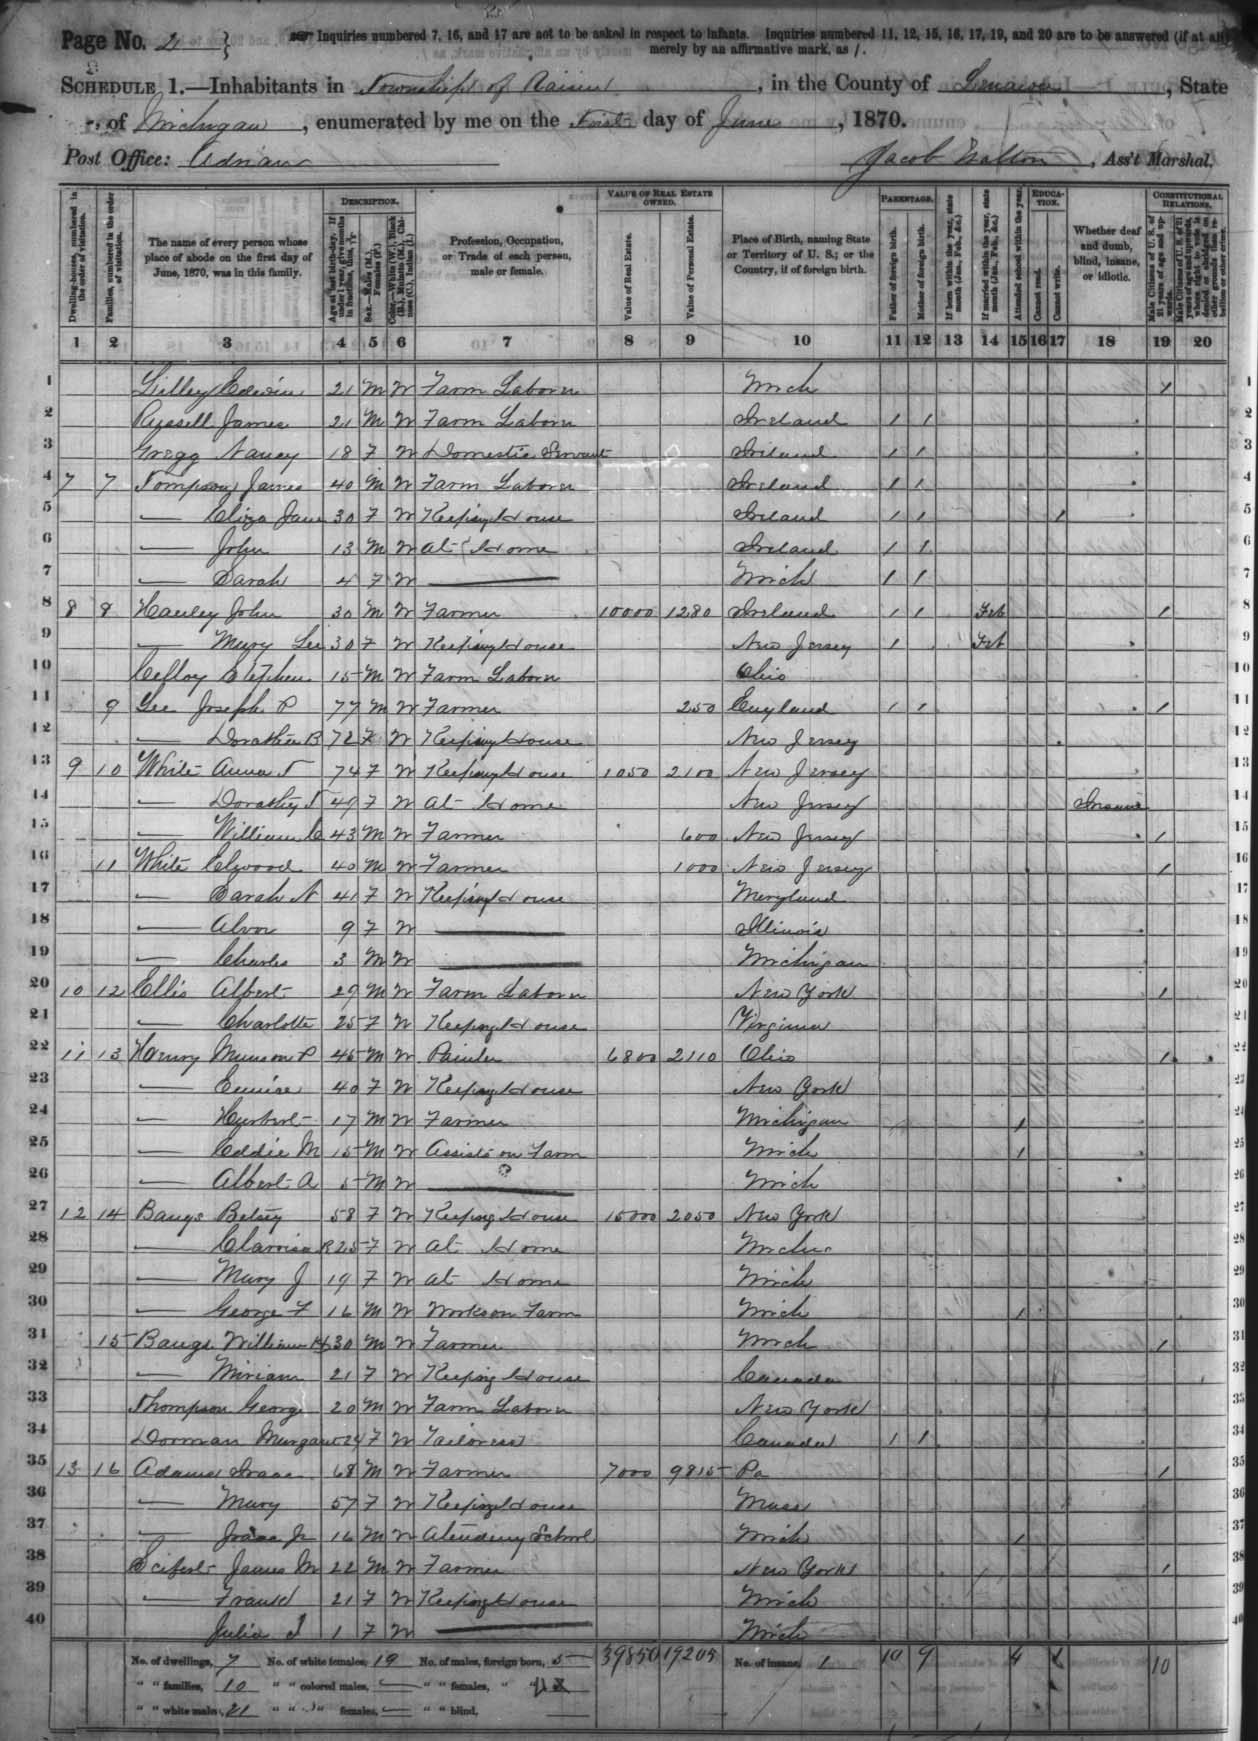 Page No. 2
Inquiries numbered 7, 16, and 17 are not to be asked in respect to infants. Inquiries numbered 11, 12, 15, 16, 17, 19, and 20 are to be answered (if at all)
merely by an affirmative mark, as /.
SCHEDULE 1.—Inhabitants in Township of Raisin, in the County of Lenawee, State
of Michigan, enumerated by me on the First day of June, 1870.
Post Office: Adrian Jacob Walton, Ass't Marshal.
Dwelling-houses, numbered in the order of visitation.
Families, numbered in the order of visitation.
The name of every person whose place of abode on the first day of June, 1870, was in this family.
DESCRIPTION.
Age at last birth-day. If under 1 year, give months in fractions, thus, 3/12
Sex.—Males (M.), Females (F.)
Color.—White (W.), Black (B.), Mulatto (M.), Chinese (C.), Indian (I.)
Profession, Occupation, or Trade of each person, male or female.
VALUE OF REAL ESTATE OWNED.
Value of Real Estate.
Value of Personal Estate.
Place of Birth, naming State or Territory of U. S.; or the Country, if of foreign birth.
PARENTAGE.
Father of foreign birth.
Mother of foreign birth.
If born within the year, state month (Jan., Feb., &c.)
If married within the year, state month (Jan., Feb., &c.)
Attended school within the year.
EDUCATION.
Cannot read.
Cannot write.
Whether deaf and dumb, blind, insane, or idiotic.
CONSTITUTIONAL RELATIONS.
Male Citizens of U. S. of 21 years of age and upwards.
1 2 3 4 5 6 7 8 9 10 11 12 13 14 15 16 17 18 19 20
1 Lilley Edwin 21 M W Farm Laborer Mich 1 1
2 Russell James 21 M W Farm Laborer Ireland 1 1 2
3 Gregg Nancy 18 F W Domestic Servant Ireland 1 1 3
4 7 7 Tompson James 40 M W Farm Laborer Ireland 1 1 4
5 — Eliza Jane 30 F W Keeping House Ireland 1 1 1 5
6 — John 13 M W At Home Ireland 1 1 6
7 — Sarah 4 F W — Mich 1 1 7
8 8 8 Hanley John 30 M W Farmer 10000 1280 Ireland 1 1 Feb 1 8
9 — Mary Lee 30 F W Keeping House New Jersey 1 Feb 9
10 Stephen 15 M W Farm Laborer Ohio 10
11 9 Gee Joseph P 77 M W Farmer 250 England 1 1 1 11
12 — Dorathea B 72 F W Keeping House New Jersey 12
13 9 10 White Anna T 74 F W Keeping House 1050 2100 New Jersey 13
14 — Dorathy T 49 F W At Home New Jersey Insane 14
15 — William C 43 M W Farmer 600 New Jersey 1 15
16 11 White Elwood 40 M W Farmer 1000 New Jersey 1 16
17 — Sarah N 41 F W Keeping House Maryland 17
18 — Alvor 9 F W — Illinois 18
19 — Charles 3 M W — Michigan 19
20 10 12 Ellis Albert 29 M W Farm Laborer New York 1 20
21 — Charlotte 25 F W Keeping House Virginia 21
22 11 13 Harvey Munson P 45 M W Painter 6800 2110 Ohio 1 22
23 — Eunice 40 F W Keeping House New York 23
24 — Hurbert 17 M W Farmer Michigan 1 24
25 — Eddie M 15 M W Assists on Farm Mich 1 25
26 — Albert A 5 M W — Mich 26
27 12 14 Bangs Betsey 58 F W Keeping House 15000 2050 New York 27
28 — Clarrisa R 25 F W At Home Mich 28
29 — Mary J 19 F W At Home Mich 29
30 — George F 16 M W Works on Farm Mich 1 30
31 15 Bangs William H 30 M W Farmer Mich 1 31
32 — Miriam 21 F W Keeping House Canada 32
33 Thompson George 20 M W Farm Laborer New York 33
34 Dorman Margaret 24 F W Tailoress Canada 1 1 34
35 13 16 Adams Isaac 68 M W Farmer 7000 9815 Pa 1 35
36 — Mary 57 F W Keeping House Mass 36
37 — Isaac Jr 16 M W Atendeng School Mich 1 37
38 Seifert James M 22 M W Farmer New York 1 38
39 — Frank 21 F W Keeping House Mich 39
40 Julia I 1 F W — Mich 40
No. of dwellings, 7 No. of white females, 19 No. of males, foreign born, 5 39850 19205 No. of insane, 1 10 9 4 1 10
" " families, 10 " " colored males, — " " females, "
" " white males, 21 " " " females, — " " blind,